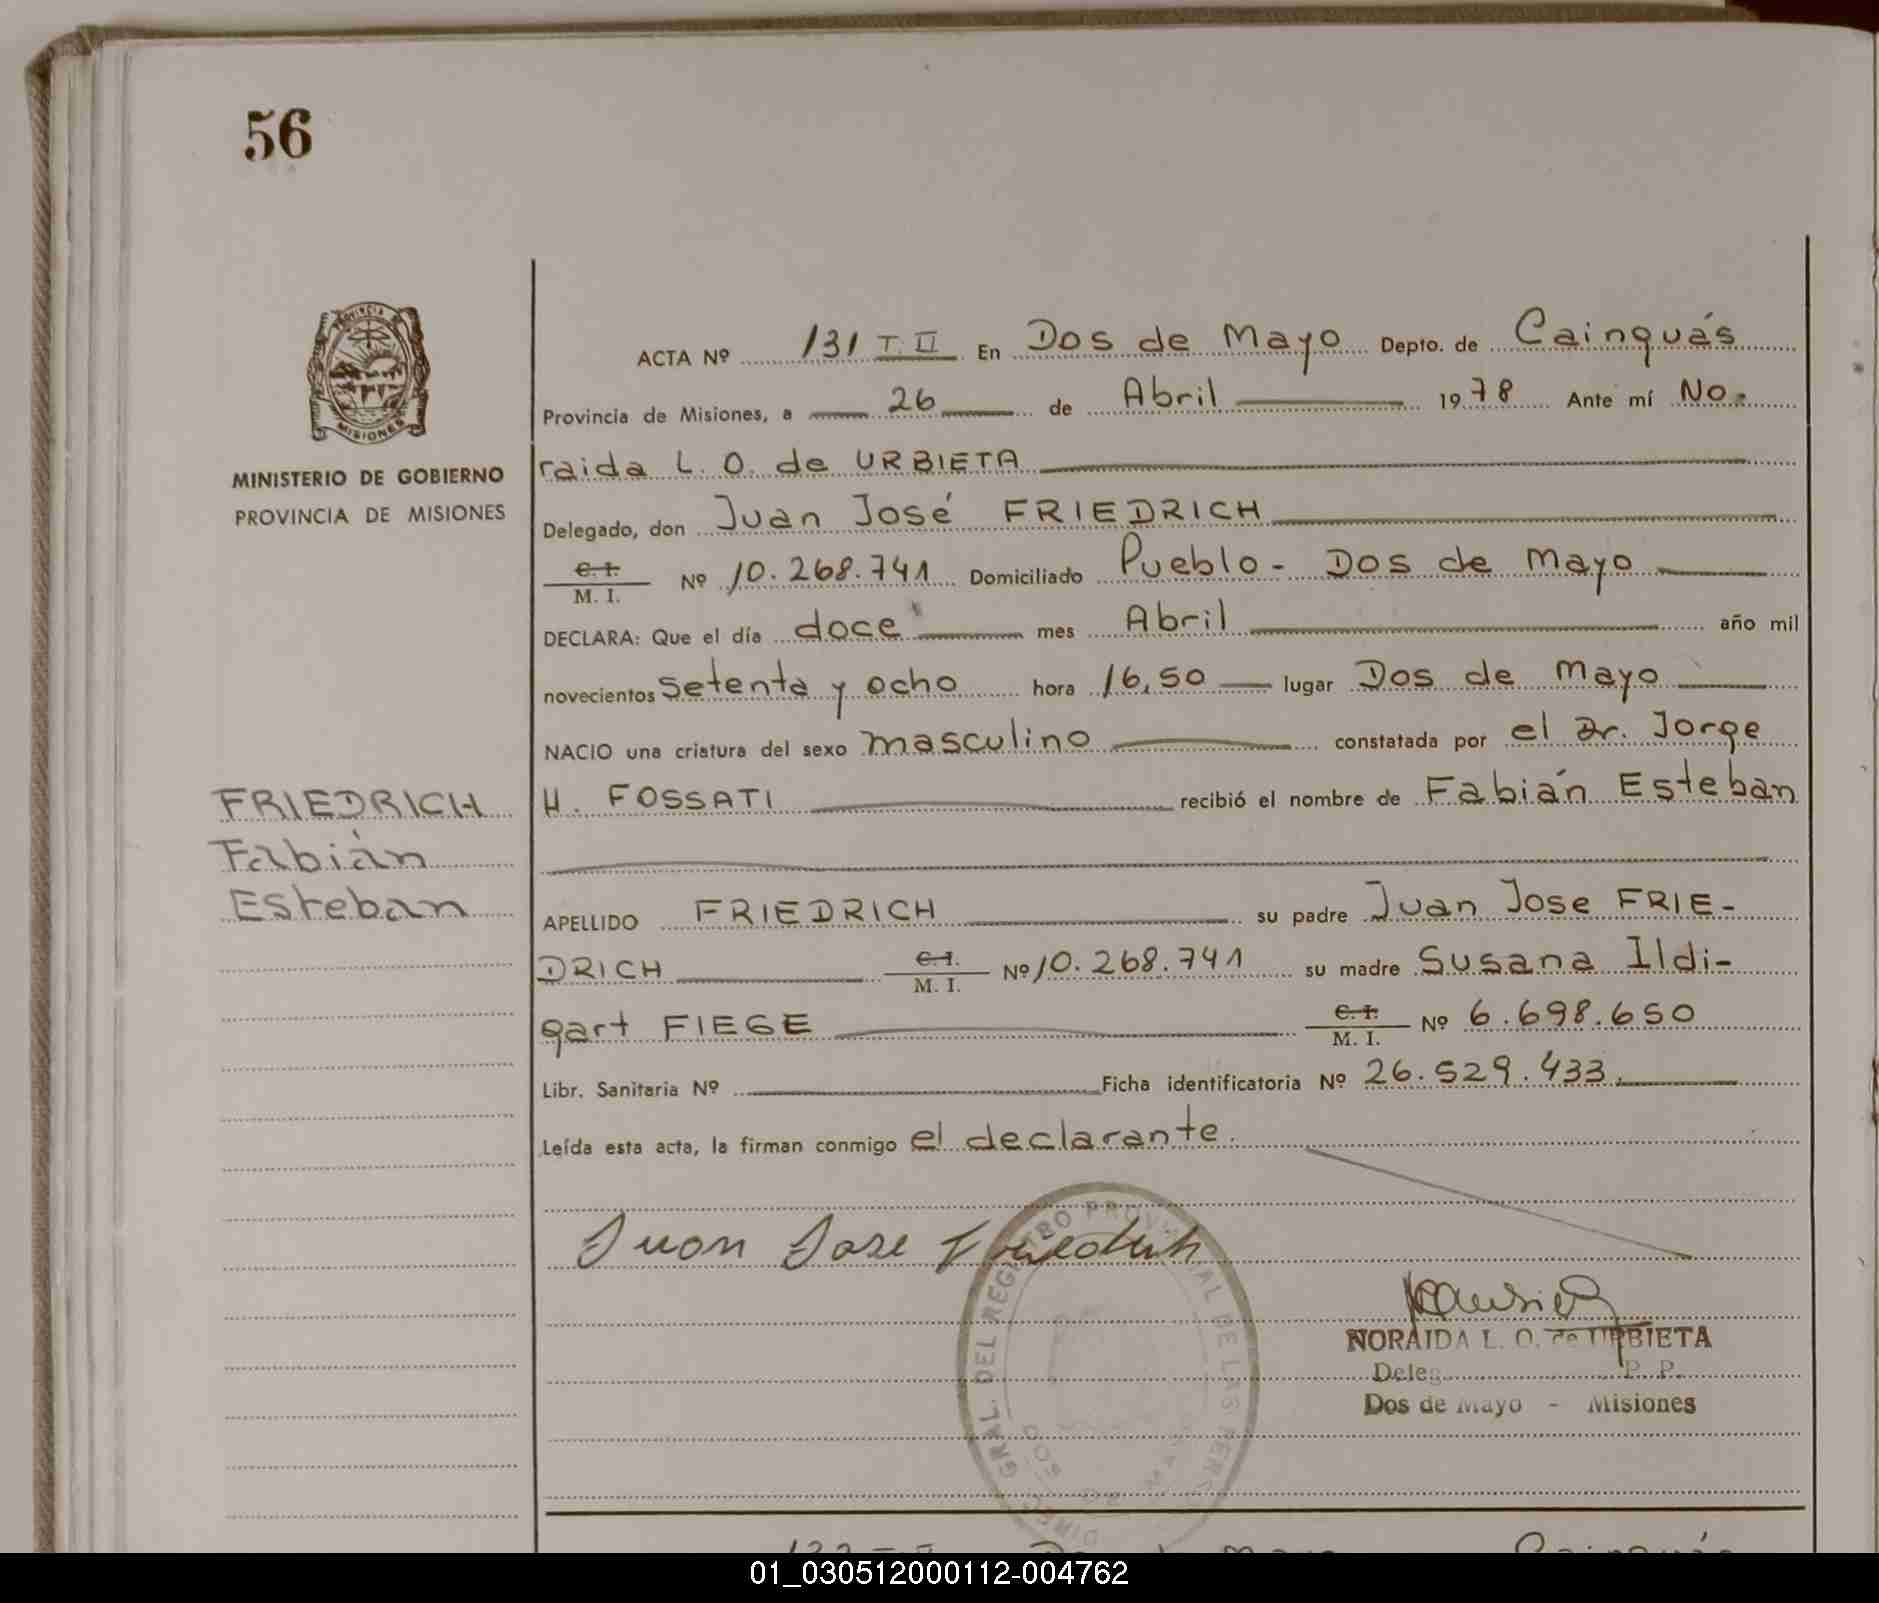 56
PROVINCIA DE
MISIONES
MINISTERIO DE GOBIERNO
PROVINCIA DE MISIONES
FRIEDRICH
Fabián
Esteban
ACTA Nº 131 T. II En Dos de Mayo Depto. de Cainguás
Provincia de Misiones, a 26 de Abril 1978 Ante mí No-
raida L. O. de URBIETA
Delegado, don Juan José FRIEDRICH
C. I. / M. I. Nº 10.268.741 Domiciliado Pueblo - Dos de Mayo
DECLARA: Que el día doce mes Abril año mil
novecientos setenta y ocho hora 16,50 lugar Dos de Mayo
NACIO una criatura del sexo masculino constatada por el Dr. Jorge
H. FOSSATI recibió el nombre de Fabián Esteban
APELLIDO FRIEDRICH su padre Juan Jose FRIE-
DRICH C. I. / M. I. Nº 10.268.741 su madre Susana Ildi-
gart FIEGE C. I. / M. I. Nº 6.698.650
Libr. Sanitaria Nº Ficha identificatoria Nº 26.529.433.
Leída esta acta, la firman conmigo el declarante.
Juan Jose Friedrich
GRAL. DEL REGISTRO PROVINCIAL DE LAS PERS
NORAIDA L. O. de URBIETA
Deleg P. P.
Dos de Mayo - Misiones
01_030512000112-004762